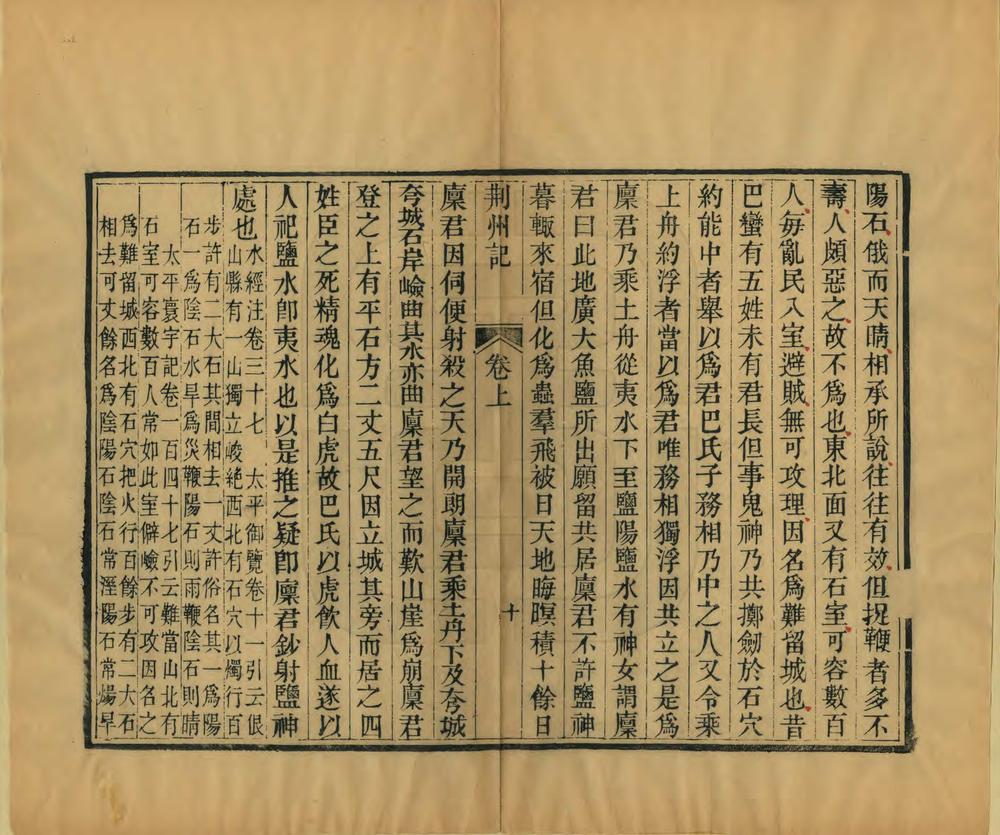 陽石俄而天晴相承所說往往有效但捉鞭者多不
壽人頗惡之故不為也東北面又有石室可容數百
人每亂民入室避賊無可攻理因名為難留城也昔
巴蠻有五姓未有君長但事鬼神乃共擲劒於石穴
約能中者舉以為君巴氏子務相乃中之人又令乘
上舟約浮者當以為君唯務相獨浮因共立之是為
廩君乃乘土舟從夷水下至鹽陽鹽水有神女謂廩
君曰此地廣大魚鹽所出願留共居廩君不許鹽神
暮輒來宿但化為蟲羣飛被日天地晦暝積十餘日
荆州記 卷上 十
廩君因伺便射殺之天乃開朗廩君乘土舟下及夸城
夸城石岸嶮曲其水亦曲廩君望之而歎山崖為崩廩君
登之上有平石方二丈五尺因立城其旁而居之四
姓臣之死精魂化為白虎故巴氏以虎飲人血遂以
人祀鹽水卽夷水也以是推之疑卽廩君鈔射鹽神
處也水經注卷三十七 太平御覽卷十一引云佷
山縣有一山獨立峻絶西北有石穴以燭行百
步許有二大石其間相去一丈許俗名其一為陽
石一為陰石水旱為災鞭陽石則雨鞭陰石則晴
太平寰宇記卷一百四十七引云難當山北有
石室可容數百人常如此室僻嶮不可攻因名之
為難留城西北有石穴把火行百餘步有二大石
相去可丈餘名為陰陽石陰石常溼陽石常煬旱